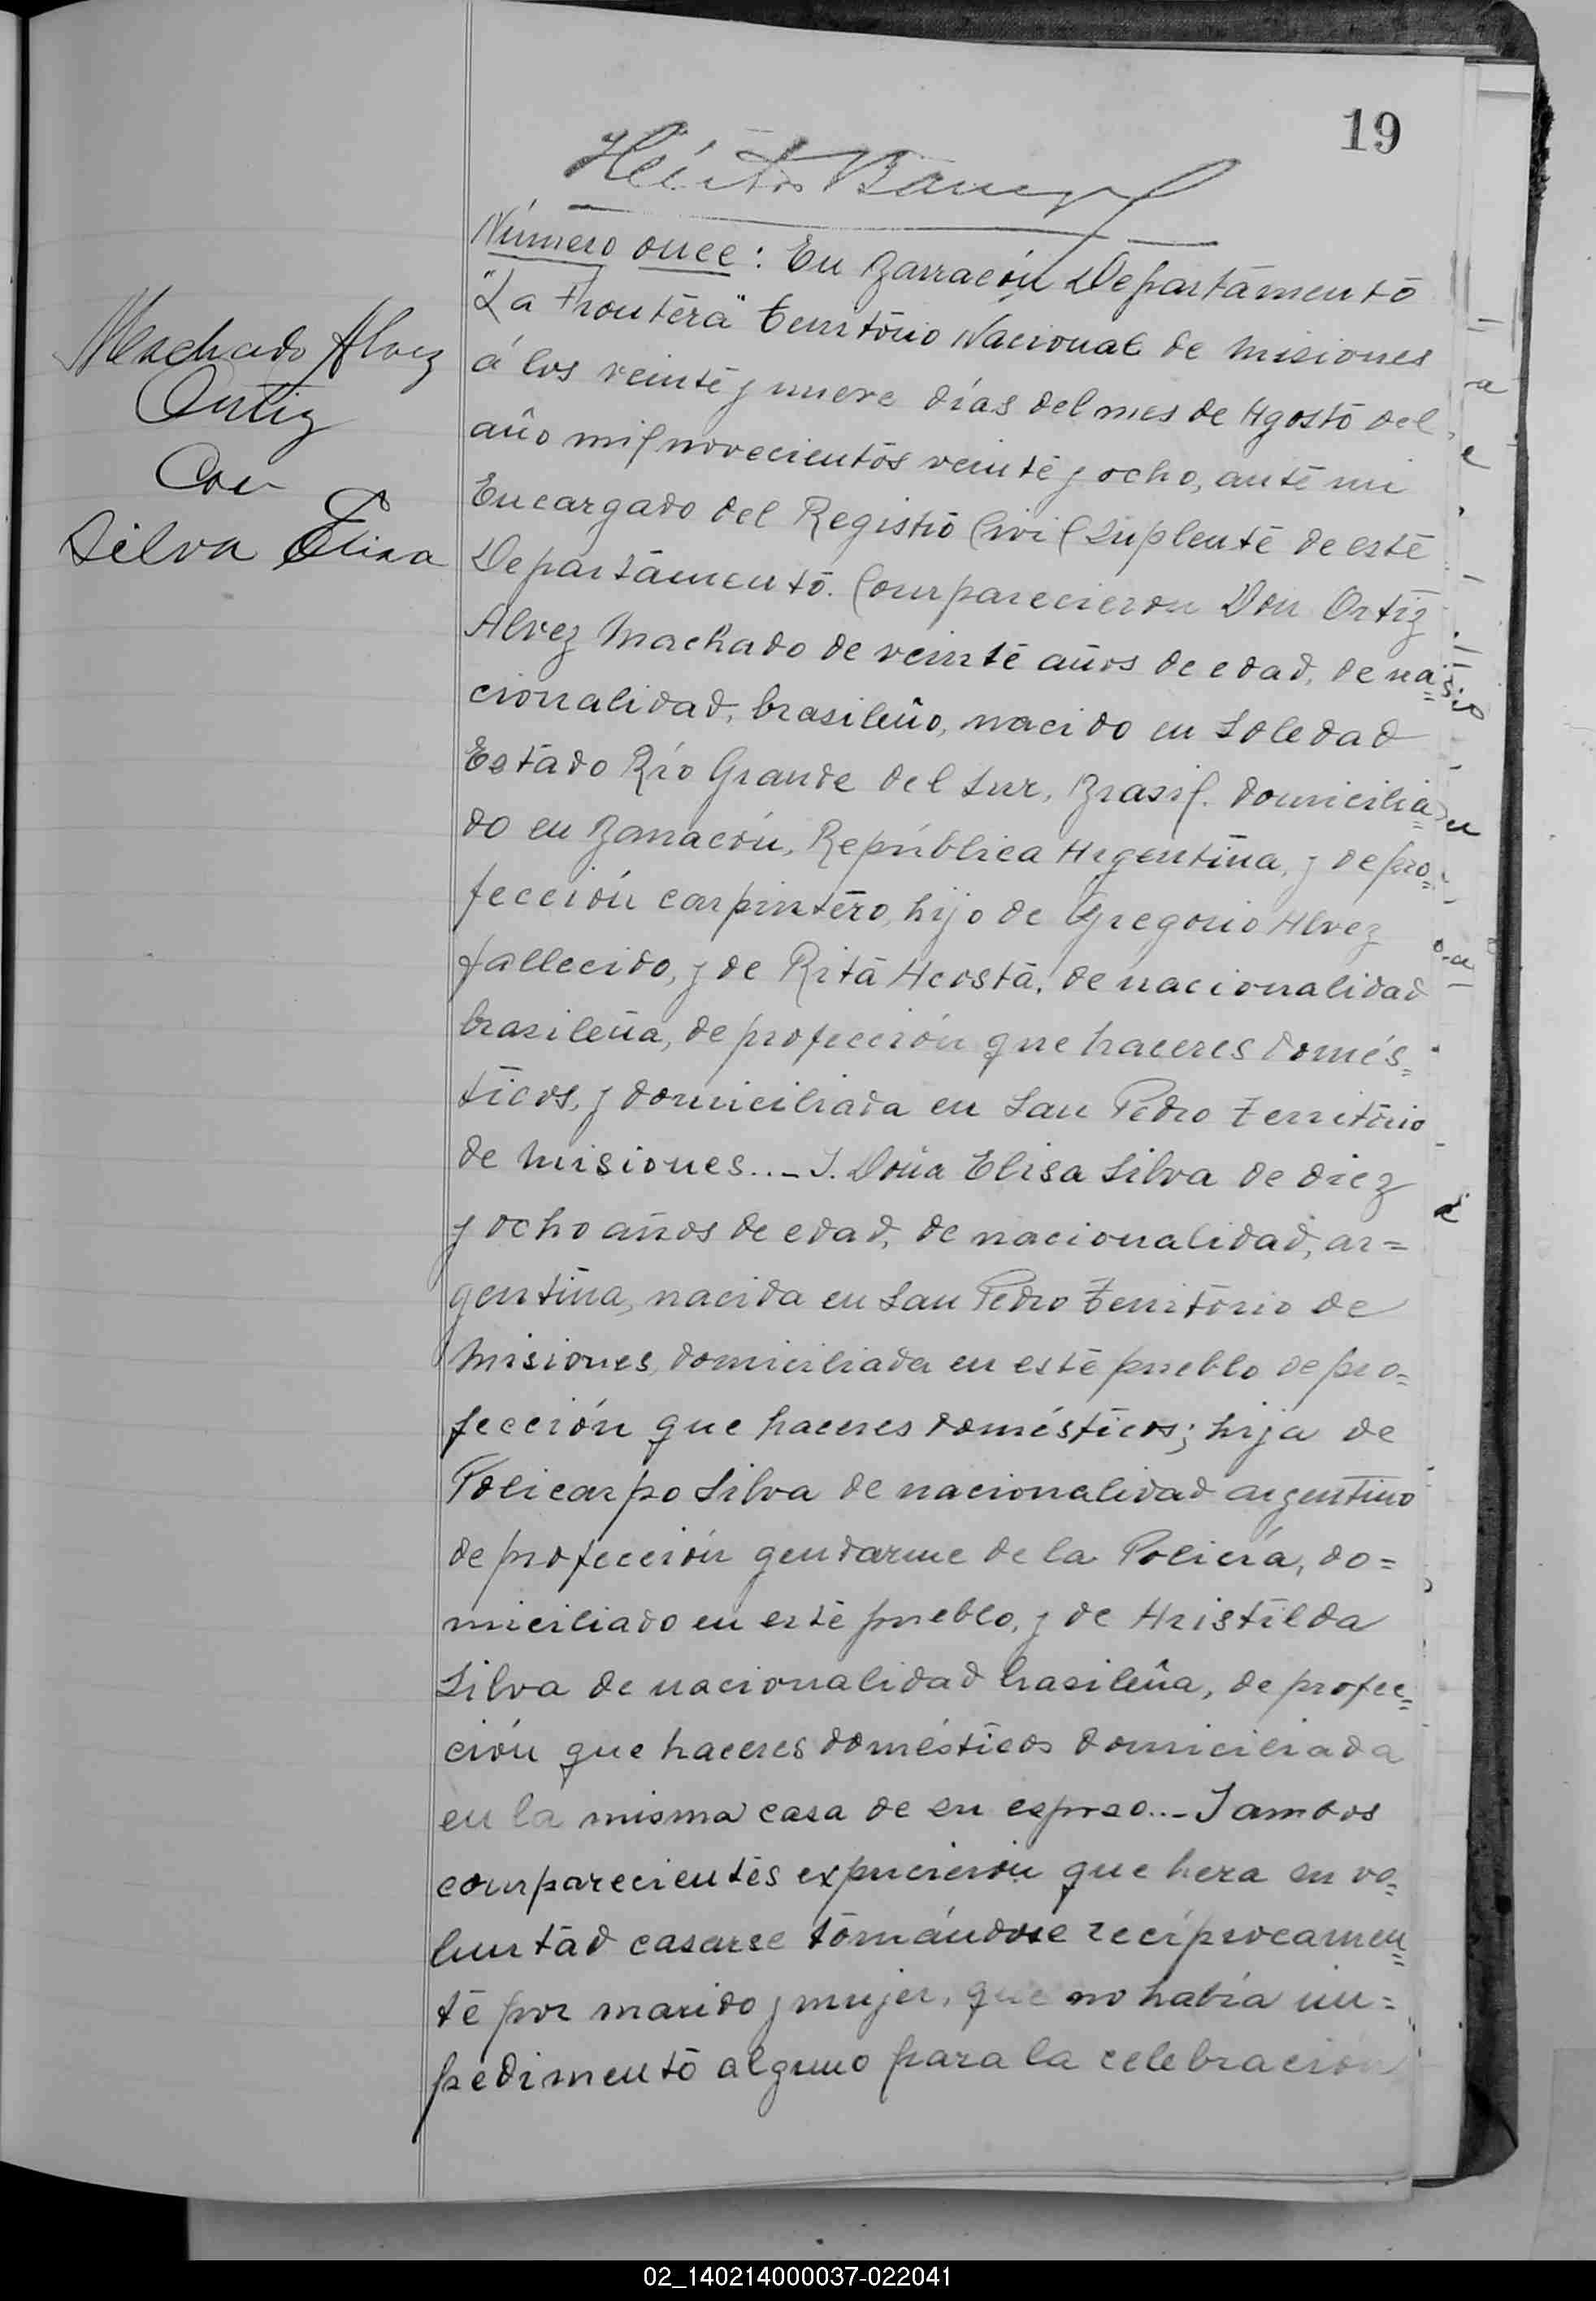 19
Héctor
Número once: En Barracón Departamento
"La Frontera" Territorio Nacional de Misiones
á los veinte y nueve días del mes de Agosto del
año mil novecientos veinte y ocho, ante mi
Encargado del Registro Civil Suplente de este
Departamento. Comparecieron Don Ortiz
Alvez Machado de veinte años de edad, de na=
cionalidad, brasileño, nacido en Soledad
Estado Río Grande del Sur, Brasil. domicilia=
do en Barracón, República Argentina, y de pro=
fección carpintero, hijo de Gregorio Alvez
fallecido, y de Rita Acosta, de nacionalidad
brasileña, de profección que haceres domés=
ticos, y domiciliada en San Pedro Territorio
de Misiones..- I. Doña Elisa Silva de diez
y ocho años de edad, de nacionalidad, ar=
gentina, nacida en San Pedro Territorio de
Misiones, domiciliada en este pueblo de pro=
fección que haceres domésticos; hija de
Policarpo Silva de nacionalidad argentino
de profección gendarme de la Policía, do=
miciliado en este pueblo, y de Aristilda
Silva de nacionalidad brasileña, de profec=
ción que haceres domésticos domiciliada
en la misma casa de su esposo..- I ambos
comparecientes expucierón que hera su vo=
luntad casarse tomándose recíprocamen=
te por marido y mujer, que no había im=
pedimento alguno para la celebración
Machado Alvez
Ortiz
Con
Silva Elisa
02_140214000037-022041